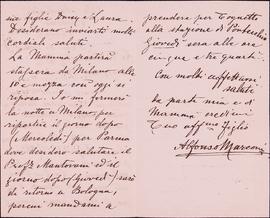 sue figlie Daisy e Laura.
Desiderano inviarti molti
cordiali saluti.
La Mamma partirà
stassera da Milano alle
10 e mezza così oggi si
riposa. Io mi fermerò
la notte a Milano, per
ripartire il giorno dopo
(Mercoledì) per Parma
dove desidero salutare il
Prof. Mantovani ed il
giorno dopo (Giovedì) sarò
di ritorno a Bologna,
percui mandami a
prendere per Tognetto
alla stazione di Pontecchio
Giovedì sera alle ore
cinque e tre quarti.
Con molti affettuosi
saluti
da parte mia e di
Mamma credimi
Tuo affmo figlio
Alfonso Marconi